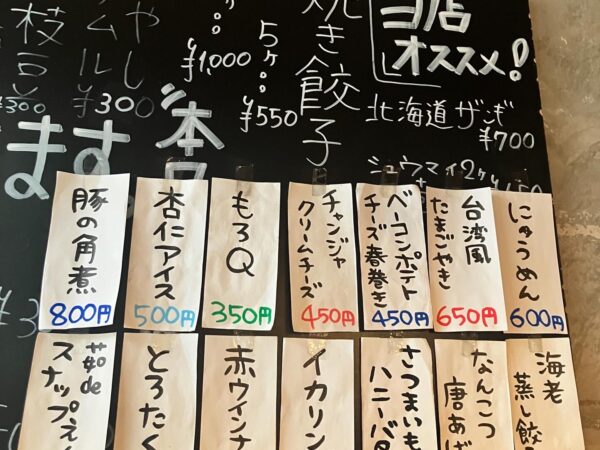 枝豆
¥300
¥300
¥1,000
焼き餃子
5ケ
¥550
当店
オススメ!
北海道ザンギ
¥700
シュウマイ2ケ
ます。
にゅうめん
600円
台湾風
たまごやき
650円
ベーコンポテト
チーズ春巻き
450円
チャンジャ
クリームチーズ
450円
もろQ
350円
杏仁アイス
500円
豚の角煮
800円
海老
蒸し餃
なんこつ
唐あげ
さつまいも
ハニーバタ
イカリン
赤ウインナ
とろたく
茹de
スナップえ